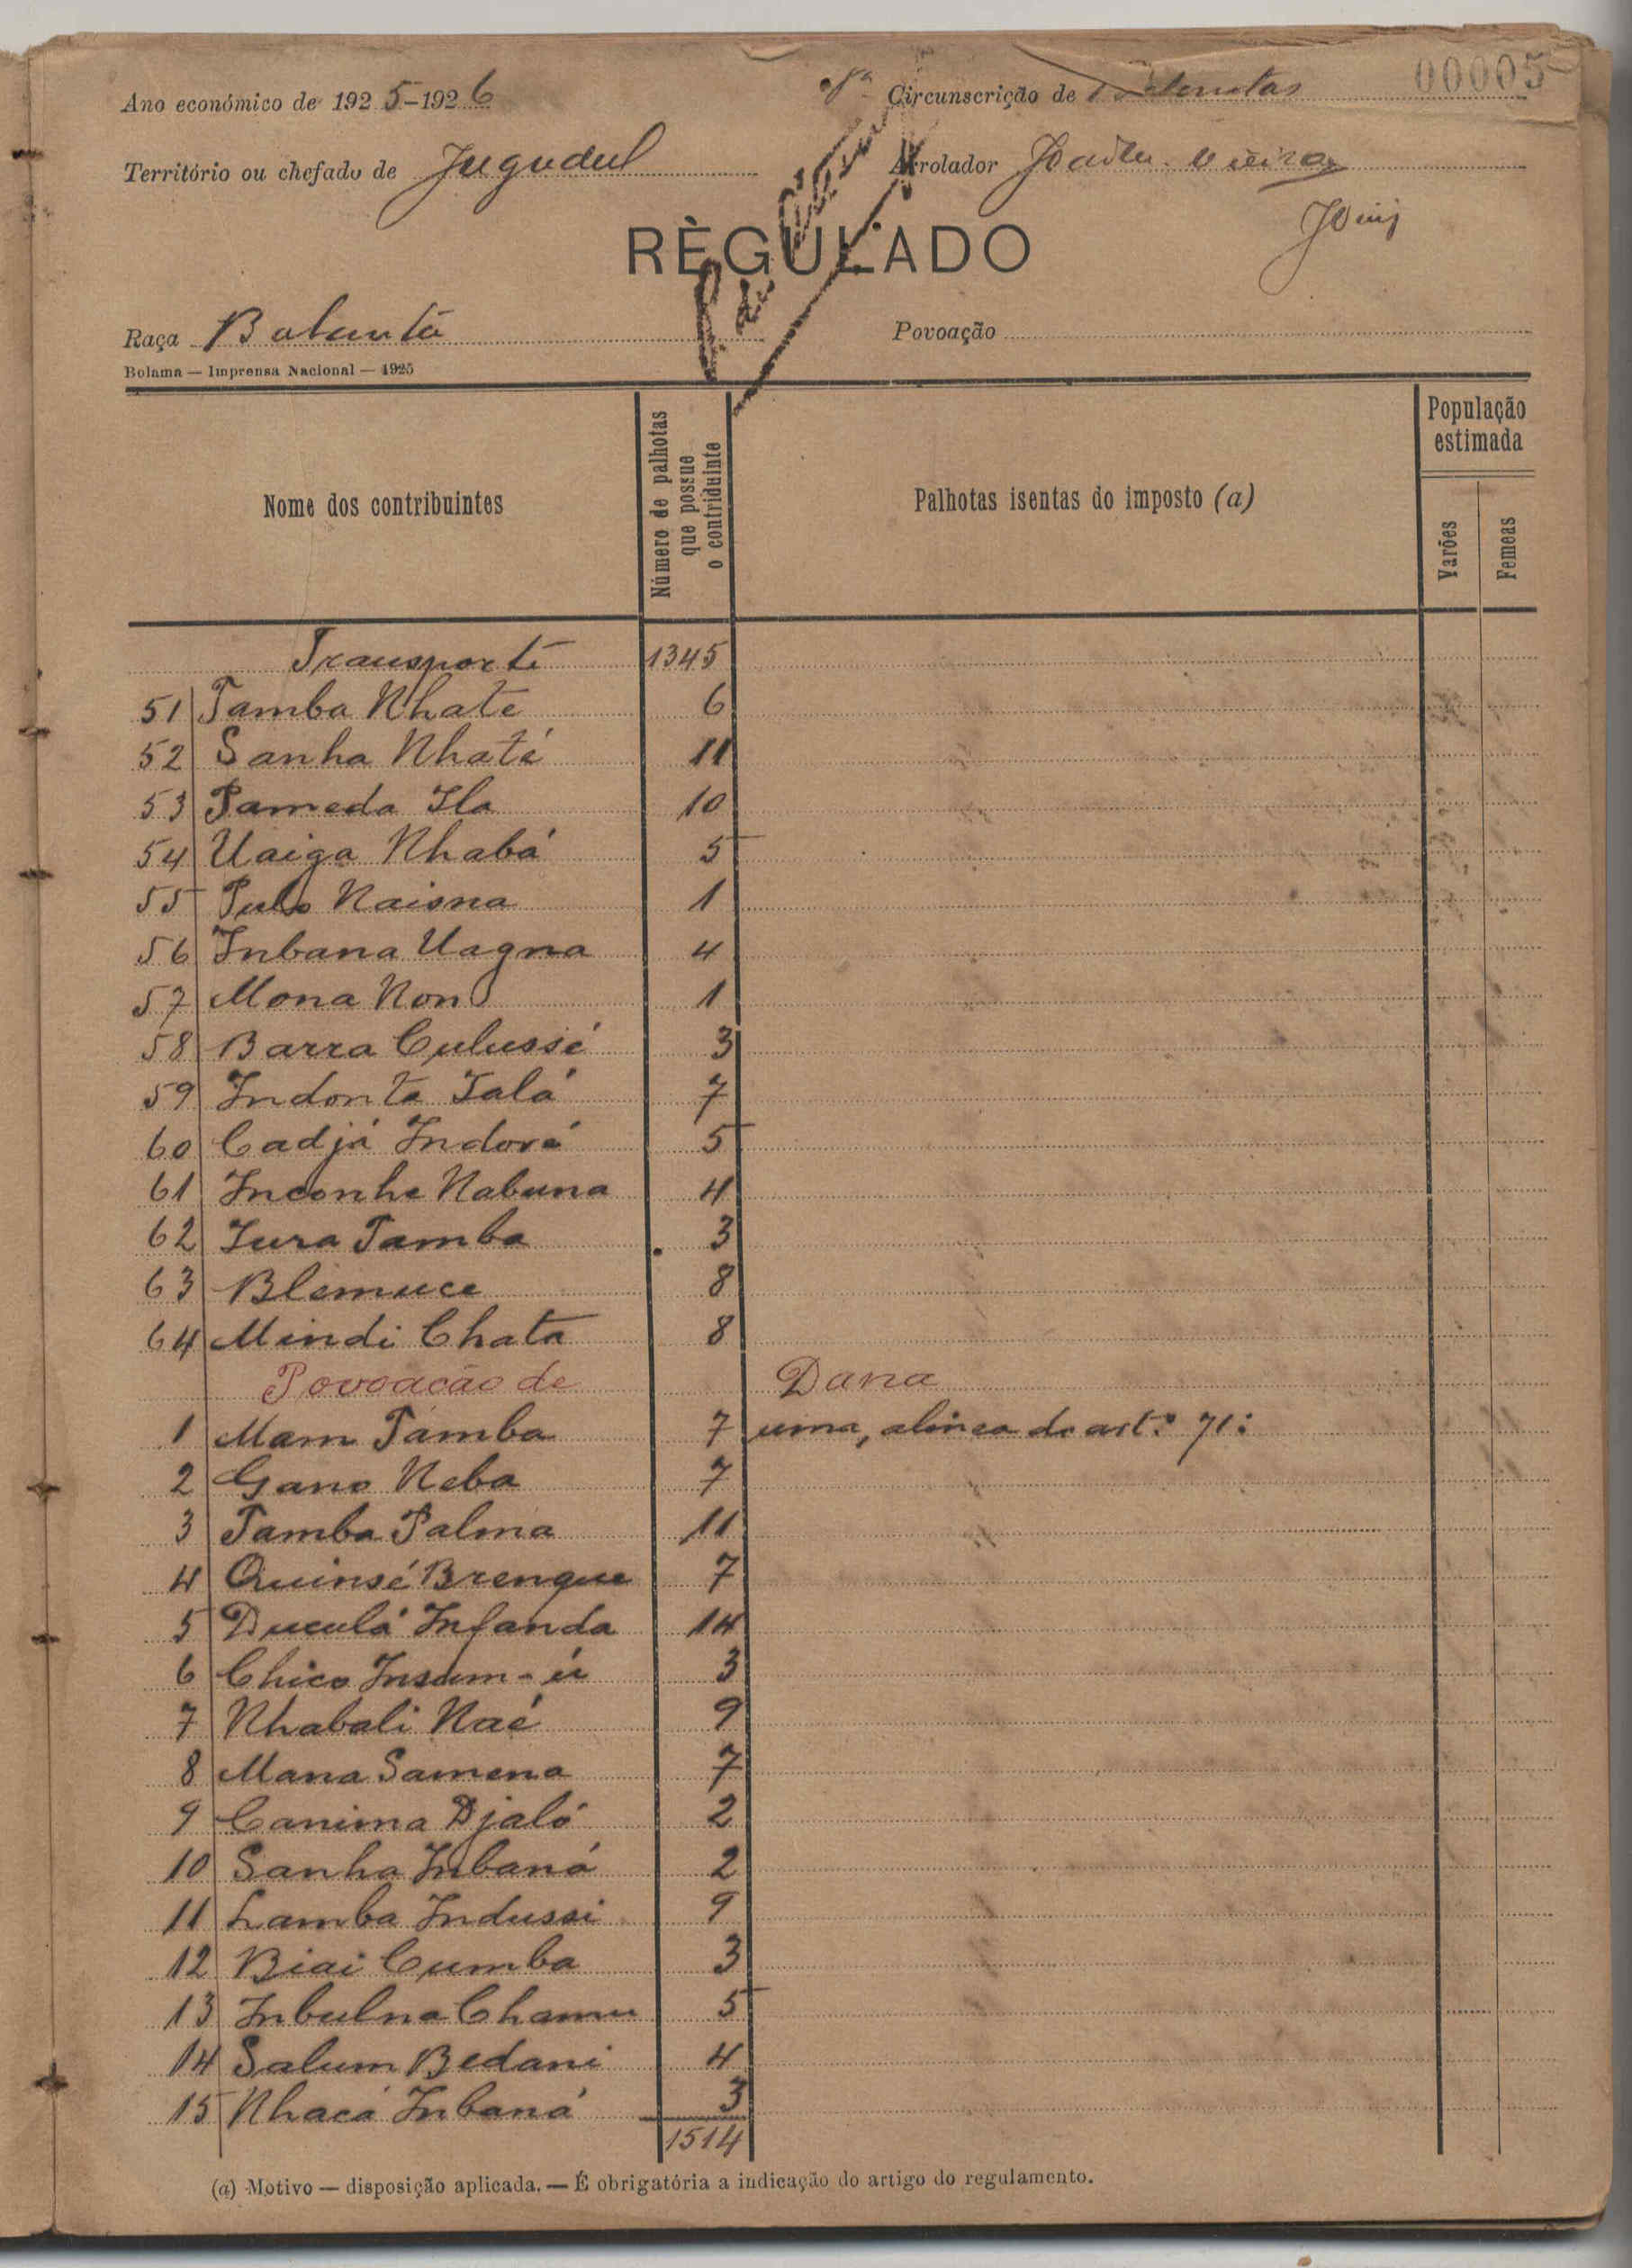 00005
Ano económico de 1925-1926
Circunscrição de
Território ou chefado de Jugudul
Arrolador Vieira
RÈGULADO
Raça Balanta
Povoação
Bolama — Imprensa Nacional — 1925
Nome dos contribuintes
Número de palhotas
que possue
o contriduinte
Palhotas isentas do imposto (a)
População
estimada
Varões
Femeas
Transporte 1345
51 Tamba Nhate 6
52 Sanha Nhaté 11
53 Pameda Ila 10
54 Uaiga Nhabá 5
55 Naisna 1
56 Inbana Uagna 4
57 Mona Non 1
58 Barra Culussé 3
59 Indonta Ialá 7
60 Cadjá Indoré 5
61 Inconhe Nabuna 4
62 Iura Tamba 3
63 Blemuce 8
64 Mindi Chata 8
Povoação de Dana
1 Mam Tamba 7 uma, alinea do art.º 71:
2 Gano Neba 7
3 Tamba Palma 11
4 Quinsé Brengue 7
5 Duculá Infanda 14
6 Chico 3
7 Nhabali Naé 9
8 Mana Samena 7
9 Canima Djaló 2
10 Sanha Inbaná 2
11 Lamba Indussi 9
12 Biai Cumba 3
13 Inbulna 5
14 Salum Bedani 4
15 Nhacá Inbaná 3
1514
(a) Motivo — disposição aplicada. — É obrigatória a indicação do artigo do regulamento.